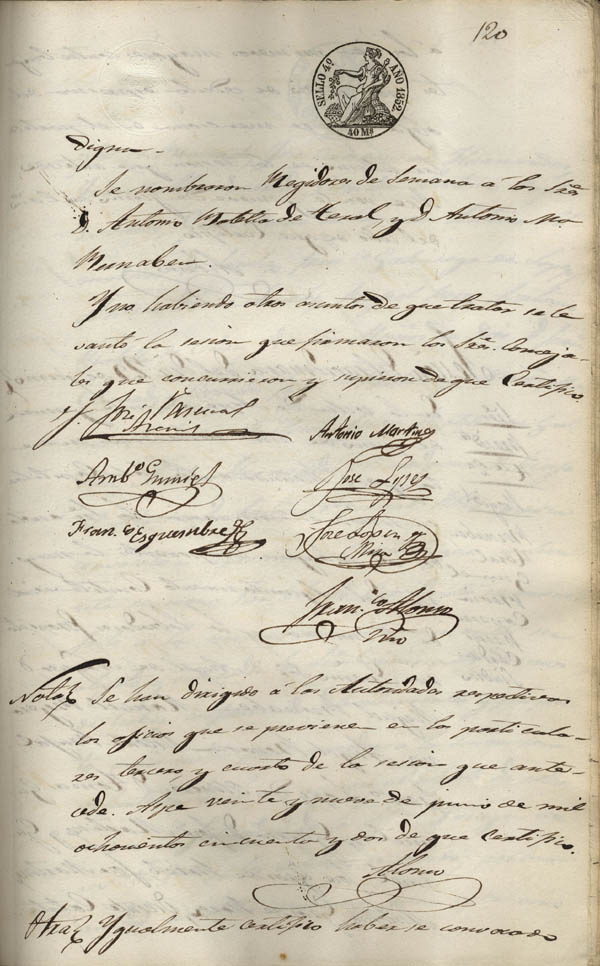 120
SELLO 4º AÑO 1852.
40 Ms
digna.
Se nombraron Regidores de Semana a los Sres
D. Antonio de y D. Antonio Ma

Y no habiendo otros asuntos de que tratar se le
vantó la sesion que firmaron los Sres. Conceja-
les que concurrieron y supieron de que Certifico.
José Pascual
Antonio Martinez
Ambº Gumiel
Jose
Franco Esquembre
Jose Lopez y
Franco Alonso
Nota Se han dirigido á las Autoridades respectivas
los oficios que se previenen en los particula-
res tercero y cuarto de la sesion que ante-
cede. veinte y nueve de junio de mil
ochocientos cincuenta y dos de que Certifico.
Alonso
Otra Ygualmente certifico haberse convocado